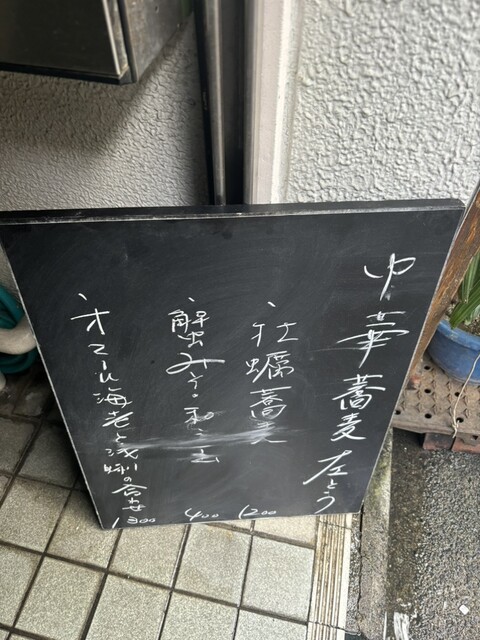 中華蕎麦 左とう
、牡蠣蕎麦 1200
、蟹みそ・和え玉 400
、オマール海老と浅蜊の合せ